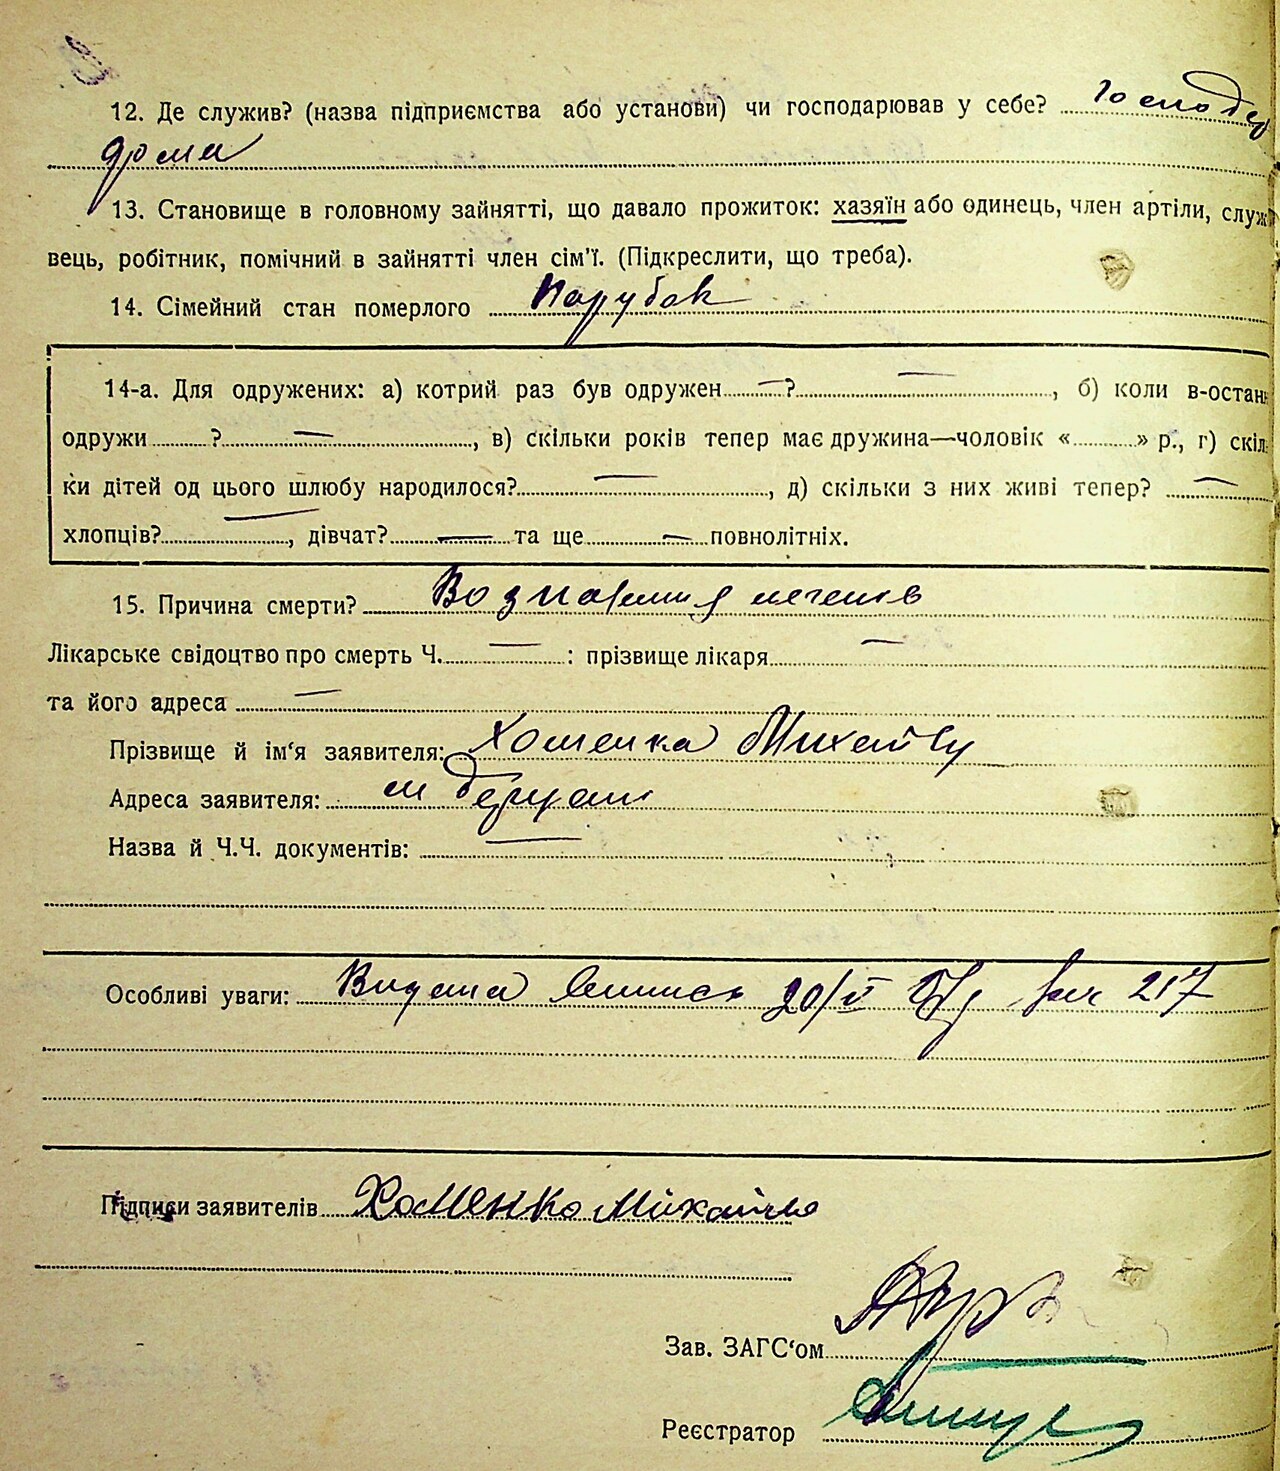 12. Де служив? (назва підприємства або установи) чи господарював у себе?
дома
13. Становище в головному зайнятті, що давало прожиток: хазяїн або одинець, член артіли, служ
вець, робітник, помічний в зайнятті член сім'ї. (Підкреслити, що треба).
14. Сімейний стан померлого Парубок
14-а. Для одружених: а) котрий раз був одружен — ? — , б) коли в-остан
одружи ? — , в) скільки років тепер має дружина—чоловік « » р., г) скіл
ки дітей од цього шлюбу народилося? — , д) скільки з них живі тепер? —
хлопців? — , дівчат? — та ще — повнолітніх.
15. Причина смерти?
Лікарське свідоцтво про смерть Ч. — : прізвище лікаря —
та його адреса —
Прізвище й ім‘я заявителя: Хоменка
Адреса заявителя:
Назва й Ч.Ч. документів: —
Особливі уваги: Видана 20/V 217
Підписи заявителів Хоменко Михайло
Зав. ЗАГС‘ом
Реєстратор